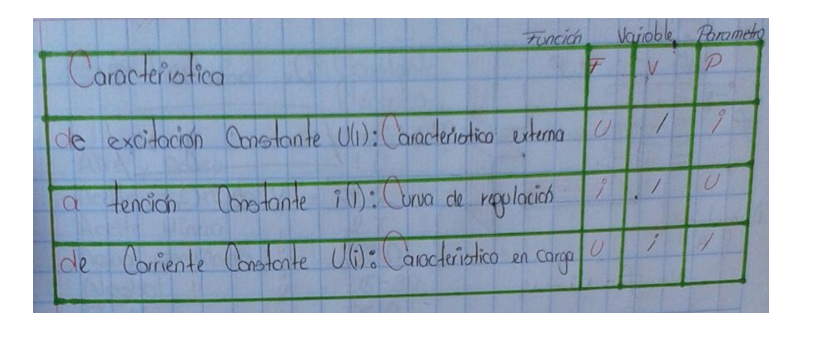 Función Variable Parametro
Caracteristica F V P
de excitación Constante U(I): Caracteristica externa U I i
a tención Constante i(I): Curva de regulación i I U
de Corriente Constante U(i): Caracteristico en carga U i I